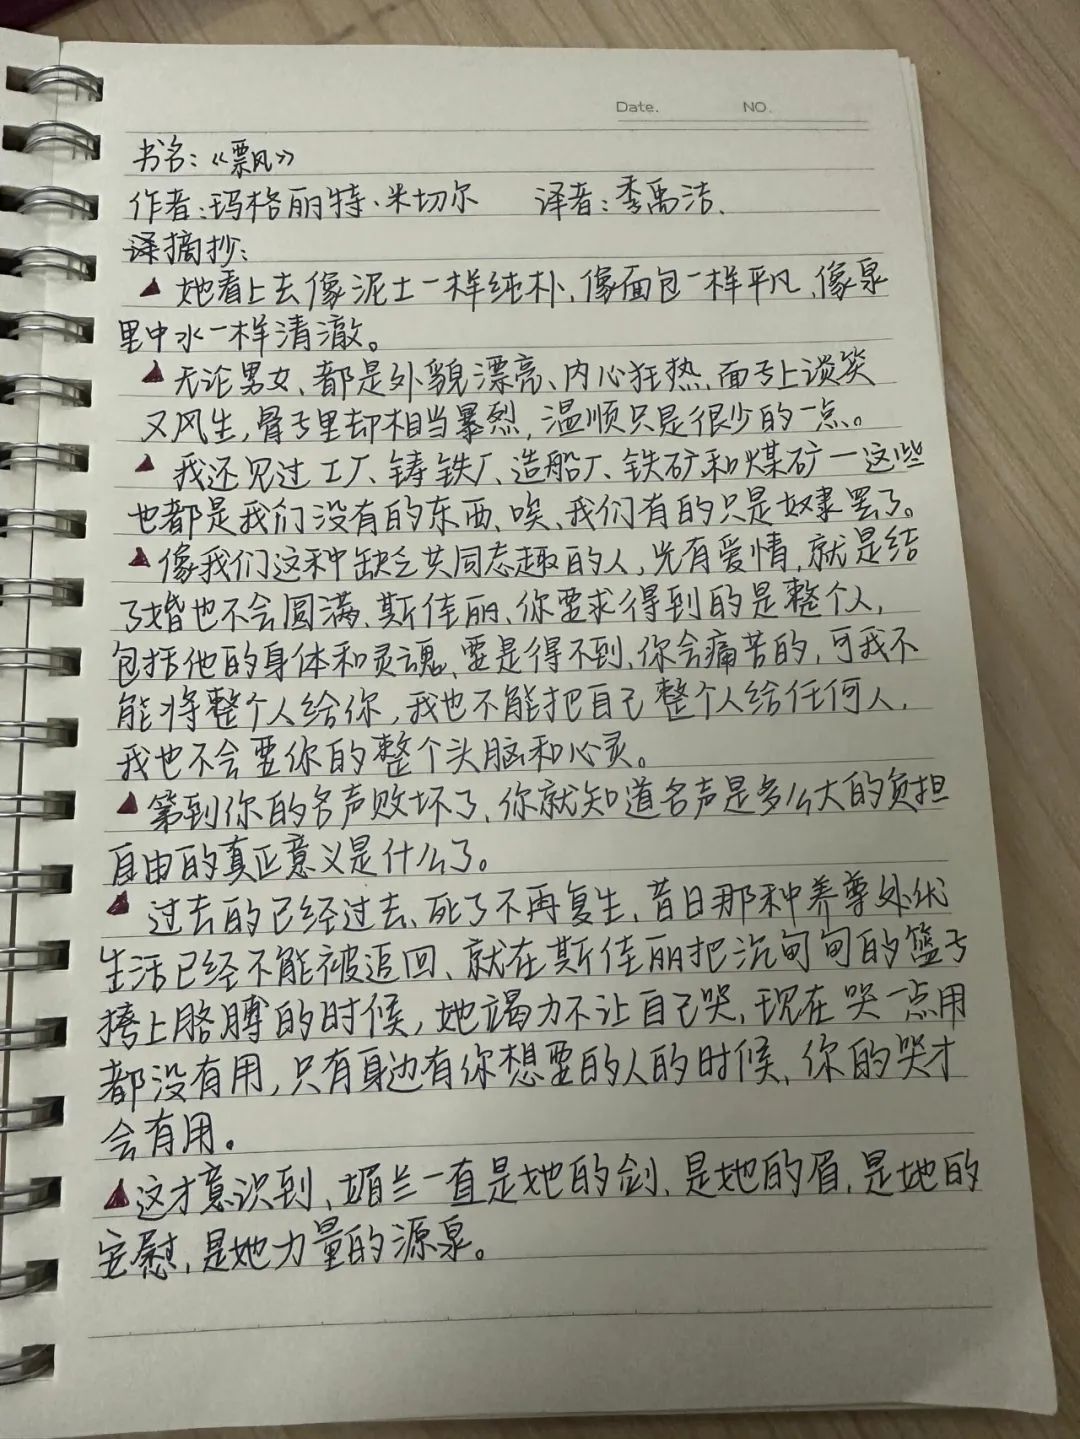 Date. NO.
书名:《飘风》
作者:玛格丽特·米切尔 译者:李禹洁.
译摘抄:
她看上去像泥土一样纯朴、像面包一样平凡、像泉
里中水一样清澈。
无论男女、都是外貌漂亮、内心狂热、面子上谈笑
又风生,骨子里却相当暴烈,温顺只是很少的一点。
我还见过工厂、铸铁厂、造船厂、铁矿和煤矿一这些
也都是我们没有的东西、唉、我们有的只是奴隶罢了。
像我们这种缺乏共同志趣的人,光有爱情,就是结
了婚也不会圆满、斯佳丽、你要求得到的是整个人,
包括他的身体和灵魂、要是得不到、你会痛苦的,可我不
能将整个人给你,我也不能把自己整个人给任何人,
我也不会要你的整个头脑和心灵。
等到你的名声败坏了、你就知道名声是多么大的负担
自由的真正意义是什么了。
过去的已经过去、死了不再复生、昔日那种养尊处优
生活已经不能被追回、就在斯佳丽把沉甸甸的篮子
挎上胳膊的时候,她竭力不让自己哭、现在哭一点用
都没有用,只有身边有你想要的人的时候、你的哭才
会有用。
这才意识到、媚兰一直是她的剑、是她的眉,是她的
安慰,是她力量的源泉。